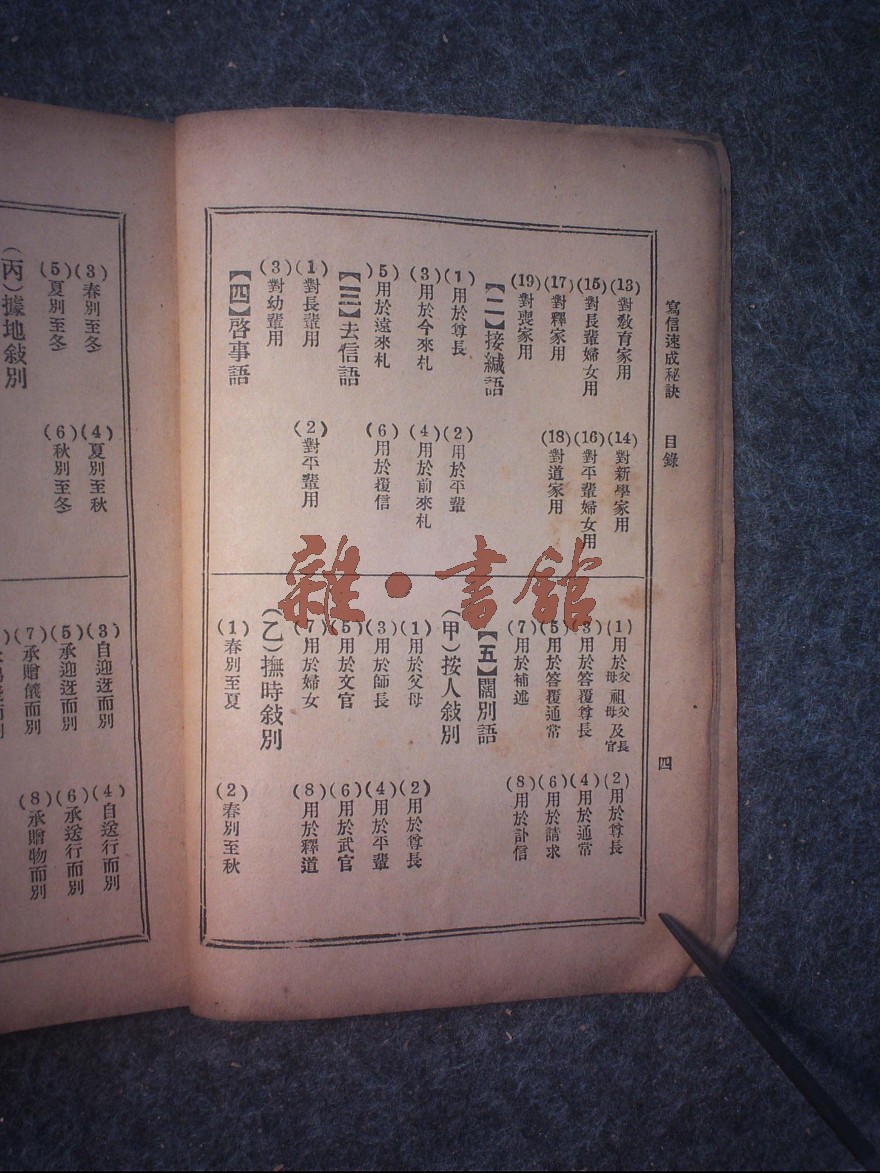 寫信速成秘訣 目錄 四
(13)對教育家用 (14)對新學家用
(15)對長輩婦女用 (16)對平輩婦女用
(17)對釋家用 (18)對道家用
(19)對喪家用
【二】接緘語
(1)用於尊長 (2)用於平輩
(3)用於今來札 (4)用於前來札
(5)用於遠來札 (6)用於復信
【三】去信語
(1)對長輩用 (2)對平輩用
(3)對幼輩用
【四】啓事語
(1)用於父母祖父母及長官 (2)用於尊長
(3)用於答覆尊長 (4)用於通常
(5)用於答覆通常 (6)用於請求
(7)用於補述 (8)用於訃信
【五】闊別語
(甲)按人敍別
(1)用於父母 (2)用於尊長
(3)用於師長 (4)用於平輩
(5)用於文官 (6)用於武官
(7)用於婦女 (8)用於釋道
(乙)撫時敍別
(1)春別至夏 (2)春別至秋
(3)春別至冬 (4)夏別至秋
(5)夏別至冬 (6)秋別至冬
(丙)據地敍別
(3)自迎迓而別 (4)自送行而別
(5)承迎迓而別 (6)承送行而別
(7)承贈儀而別 (8)承贈物而別
雜·書館